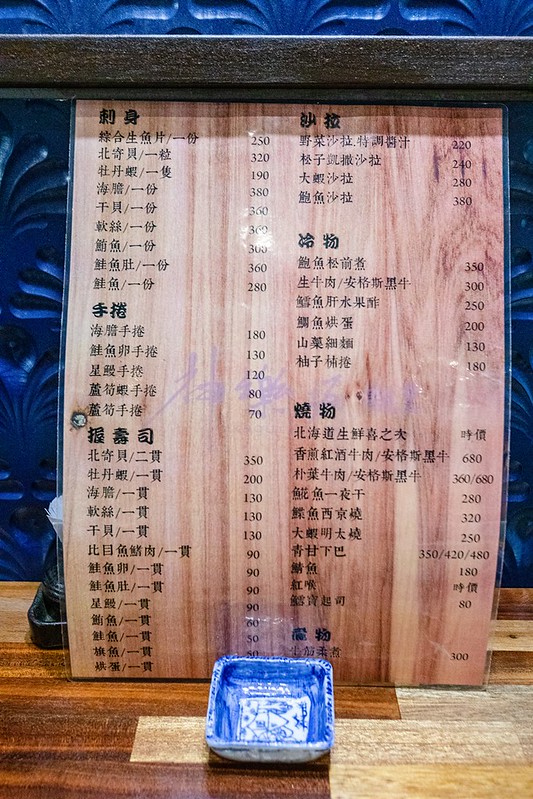 刺身
綜合生魚片/一份 250
北寄貝/一粒 320
牡丹蝦/一隻 190
海膽/一份 380
干貝/一份 360
軟絲/一份 360
鮪魚/一份 300
鮭魚肚/一份 360
鮭魚/一份 280
手捲
海膽手捲 180
鮭魚卵手捲 130
星鰻手捲 120
蘆筍蝦手捲 80
蘆筍手捲 70
握壽司
北寄貝/二貫 350
牡丹蝦/一貫 200
海膽/一貫 130
軟絲/一貫 130
干貝/一貫 130
比目魚鰭肉/一貫 90
鮭魚卵/一貫 90
鮭魚肚/一貫 90
星鰻/一貫 90
鮪魚/一貫 60
鮭魚/一貫 50
旗魚/一貫 50
烘蛋/一貫
沙拉
野菜沙拉.特調醬汁 220
松子凱撒沙拉 240
大蝦沙拉 280
鮑魚沙拉 380
冷物
鮑魚松前煮 350
生牛肉/安格斯黑牛 300
鱈魚肝水果酢 250
鯛魚烘蛋 200
山藥細麵 130
柚子柿捲 180
燒物
北海道生鮮喜之次 時價
香煎紅酒牛肉/安格斯黑牛 680
朴葉牛肉/安格斯黑牛 360/680
魭魚一夜干 280
鰈魚西京燒 320
大蝦明太燒 250
青甘下巴 350/420/480
鯖魚 180
紅喉 時價
鱈寶起司 80
物
牛筋柔煮 300